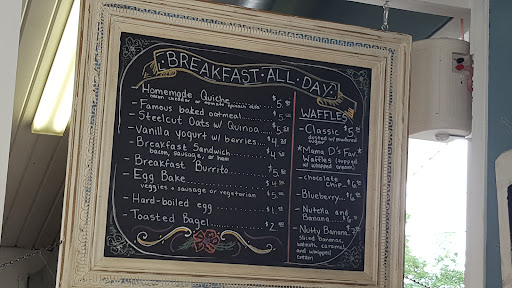 BREAKFAST ALL DAY
- Homemade Quiche....... $5.
- Famous baked oatmeal..... $5.
- Steelcut Oats w/ Quinoa.. $5.
- Vanilla yogurt w/ berries... $4.
- Breakfast Sandwich....... $4.
bacon, sausage, or ham
- Breakfast Burrito........ $5.
- Egg Bake ........ $4.
veggies + sausage or vegetarian $5.
- Hard-boiled egg ........ $1.
- Toasted Bagel........ $2.
WAFFLES
- Classic $5.
dusted w/ powdered
sugar
*Mama D's Fav.
Waffles (topped
w/ whipped cream)
- chocolate
chip... $6.
- Blueberry.. $6.
- Nutella and
Banana.... $6.
- Nutty Banana
sliced bananas,
walnuts, caramel,
and whipped
cream